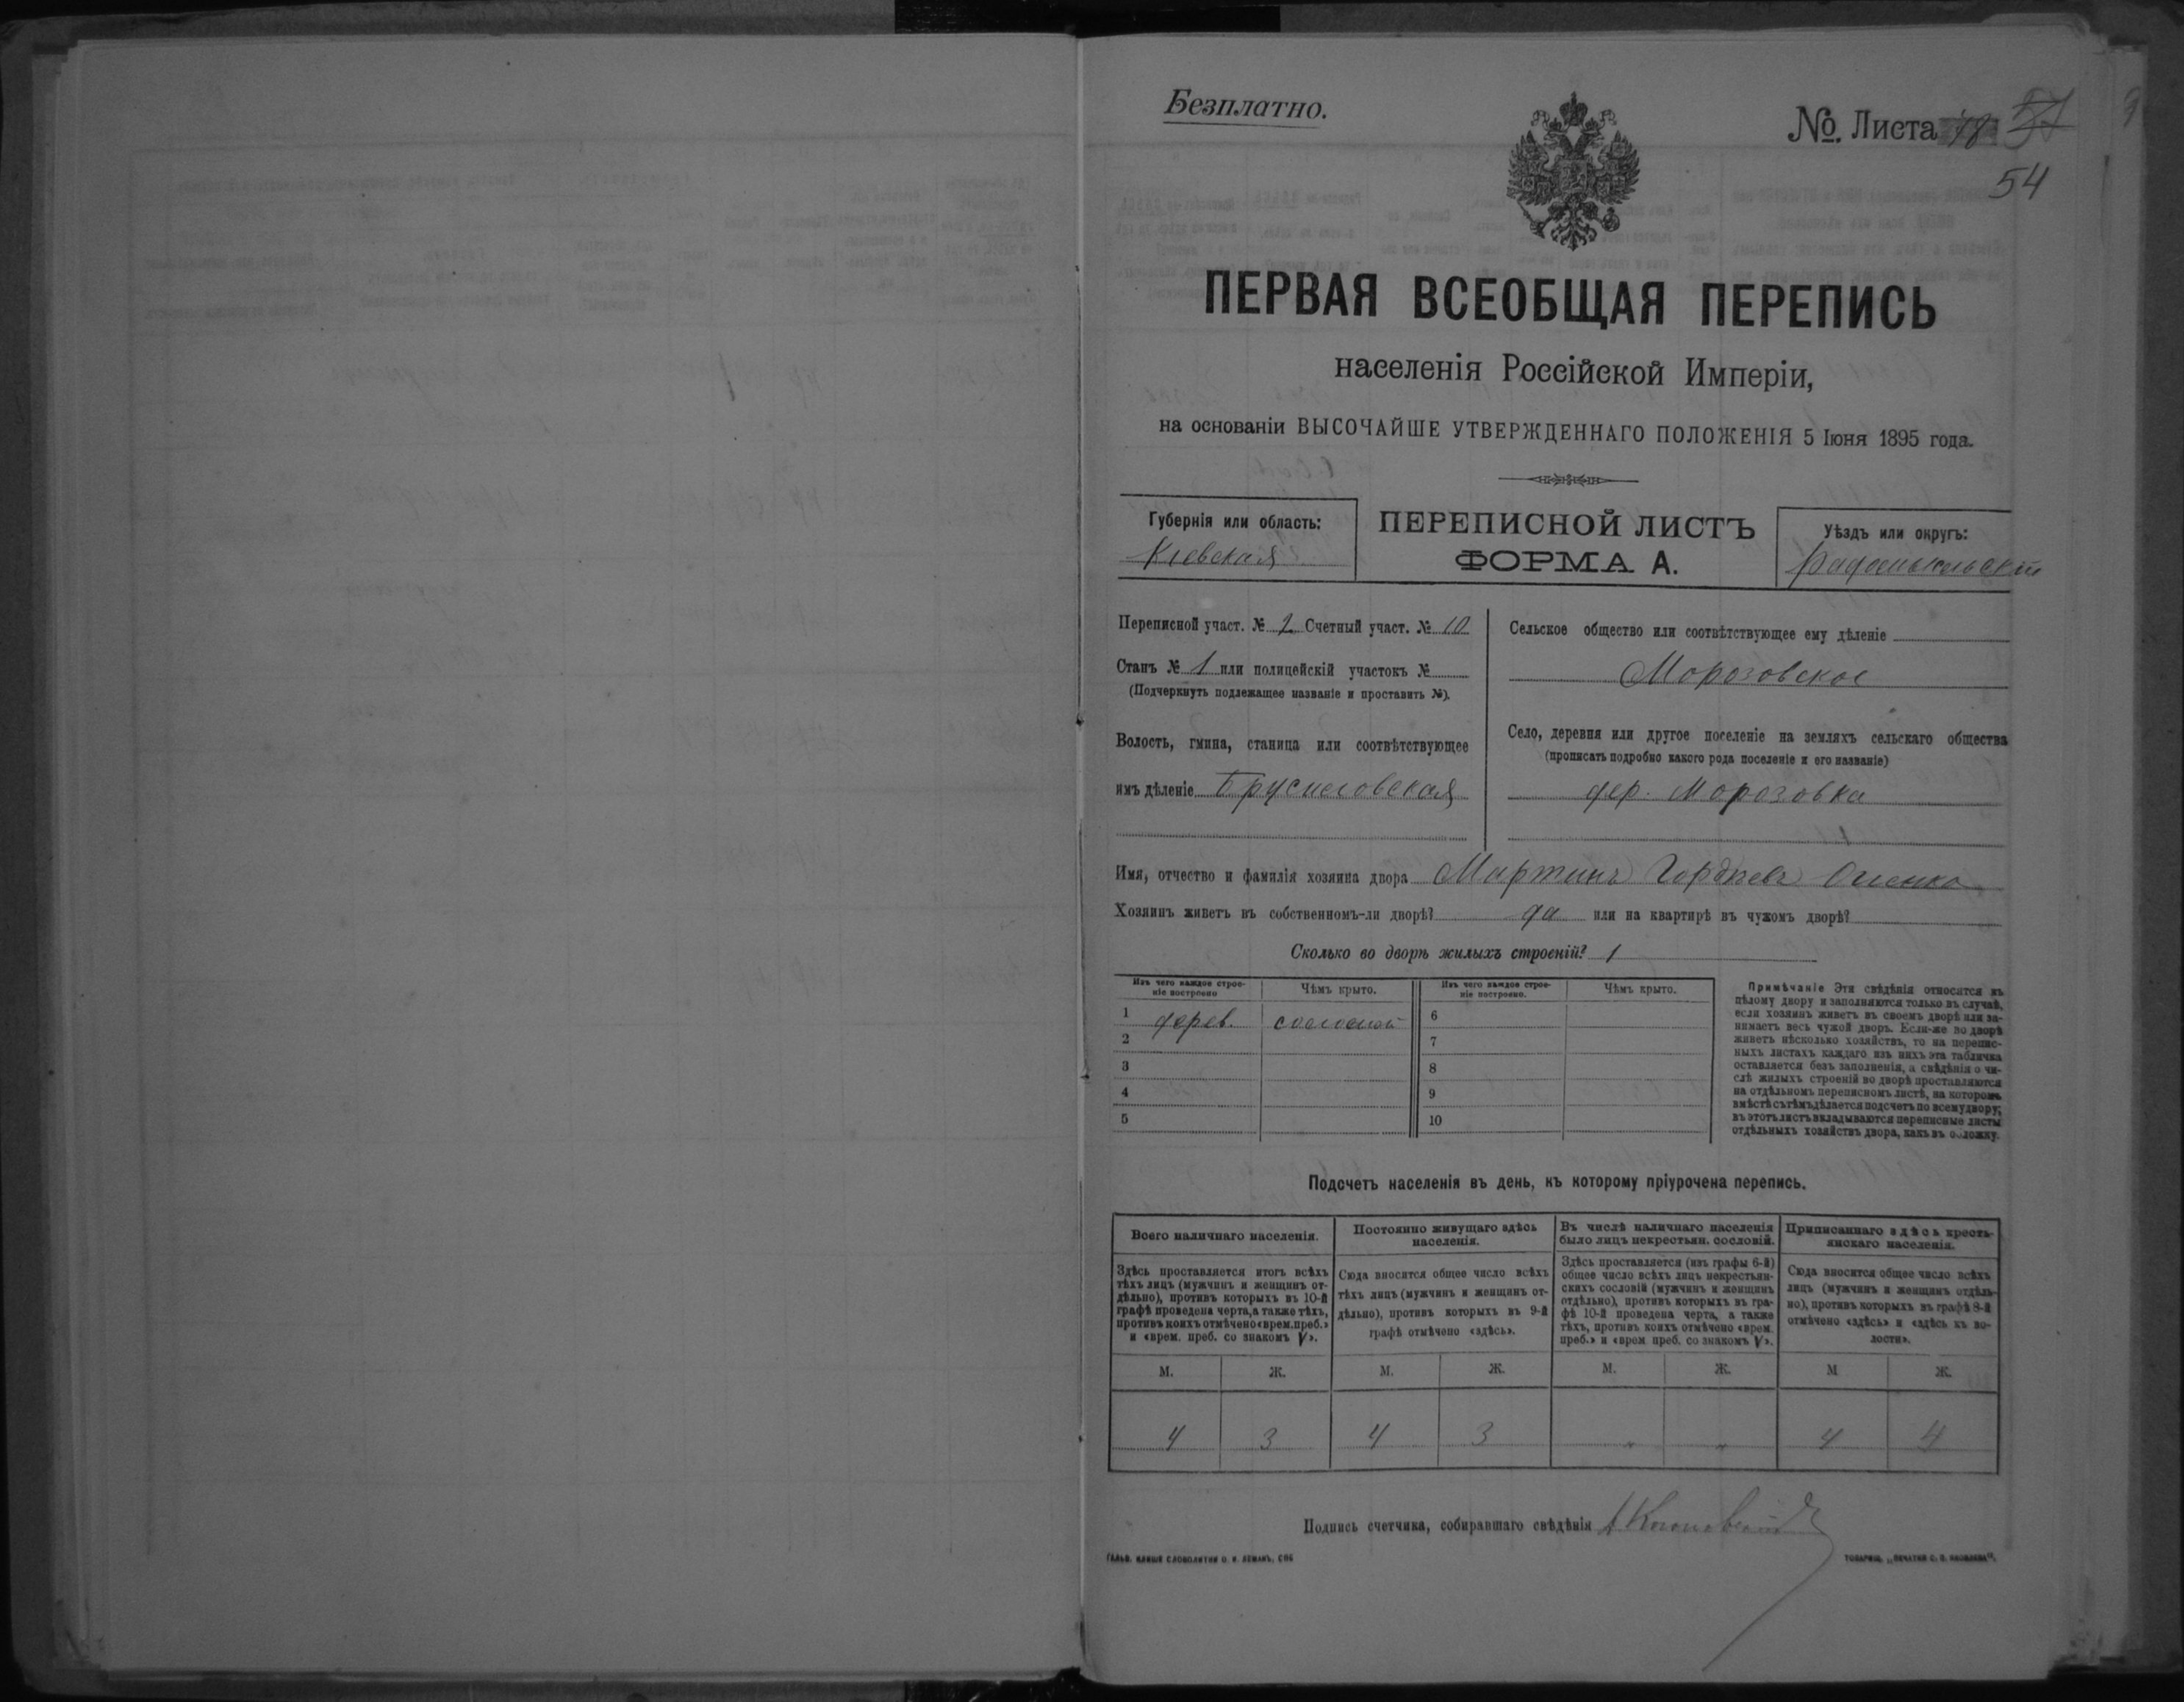 Безплатно.
№ Листа 18 57
54
ПЕРВАЯ ВСЕОБЩАЯ ПЕРЕПИСЬ
населенія Россійской Имперіи,
на основаніи ВЫСОЧАЙШЕ УТВЕРЖДЕННАГО ПОЛОЖЕНІЯ 5 Іюня 1895 года.
Губернія или область:
Кіевская
ПЕРЕПИСНОЙ ЛИСТЪ
ФОРМА А.
Уѣздъ или округъ:
Радомысльскій
Переписной участ. № 2 Счетный участ. № 10
Станъ № 1 или полицейскій участокъ №
(Подчеркнуть подлежащее названіе и проставить №).
Волость, гмина, станица или соотвѣтствующее
имъ дѣленіе Брусиловская
Сельское общество или соотвѣтствующее ему дѣленіе
Морозовское
Село, деревня или другое поселеніе на земляхъ сельскаго общества
(прописать подробно какого рода поселеніе и его названіе)
дер. Морозовка
Имя, отчество и фамилія хозяина двора Мартинъ Гордѣевъ
Хозяинъ живетъ въ собственномъ-ли дворѣ? да или на квартирѣ въ чужомъ дворѣ?
Сколько во дворѣ жилыхъ строеній? 1
Изъ чего каждое строе-
ніе построено
Чѣмъ крыто.
Изъ чего каждое строе-
ніе построено.
Чѣмъ крыто.
1 дерев. соломой 6
2 7
3 8
4 9
5 10
Примѣчаніе Эти свѣдѣнія относятся къ
цѣлому двору и заполняются только въ случаѣ,
если хозяинъ живетъ въ своемъ дворѣ или за-
нимаетъ весь чужой дворъ. Если-же во дворѣ
живетъ нѣсколько хозяйствъ, то на перепис-
ныхъ листахъ каждаго изъ нихъ эта табличка
оставляется безъ заполненія, а свѣдѣнія о чи-
слѣ жилыхъ строеній во дворѣ проставляются
на отдѣльномъ переписномъ листѣ, на которомъ
вмѣстѣ съ тѣмъ дѣлается подсчетъ по всему двору;
въ этотъ листъ вкладываются переписные листы
отдѣльныхъ хозяйствъ двора, какъ въ обложку.
Подсчетъ населенія въ день, къ которому пріурочена перепись.
Всего наличнаго населенія.
Здѣсь проставляется итогъ всѣхъ
тѣхъ лицъ (мужчинъ и женщинъ от-
дѣльно), противъ которыхъ въ 10-й
графѣ проведена черта, а также тѣхъ,
противъ коихъ отмѣчено «врем. преб.»
и «врем. преб. со знакомъ V».
Постоянно живущаго здѣсь
населенія.
Сюда вносится общее число всѣхъ
тѣхъ лицъ (мужчинъ и женщинъ от-
дѣльно), противъ которыхъ въ 9-й
графѣ отмѣчено «здѣсь».
Въ числѣ наличнаго населенія
было лицъ некрестьян. сословій.
Здѣсь проставляется (изъ графы 6-й)
общее число всѣхъ лицъ некрестьян-
скихъ сословій (мужчинъ и женщинъ
отдѣльно), противъ которыхъ въ гра-
фѣ 10-й проведена черта, а также
тѣхъ, противъ коихъ отмѣчено «врем.
преб.» и «врем. преб. со знакомъ V».
Приписаннаго здѣсь кресть-
янскаго населенія.
Сюда вносится общее число всѣхъ
лицъ (мужчинъ и женщинъ отдѣль-
но), противъ которыхъ въ графѣ 8-й
отмѣчено «здѣсь» и «здѣсь къ во-
лости».
М. Ж. М. Ж. М. Ж. М Ж.
4 3 4 3 " " 4 4
Подпись счетчика, собиравшаго свѣдѣнія
ГАЛЬВ. КЛИШЕ СЛОВОЛИТНИ О. И. ЛЕМАНЪ, СПБ
ТОВАРИЩ. „ПЕЧАТНЯ С. П. ЯКОВЛЕВА".